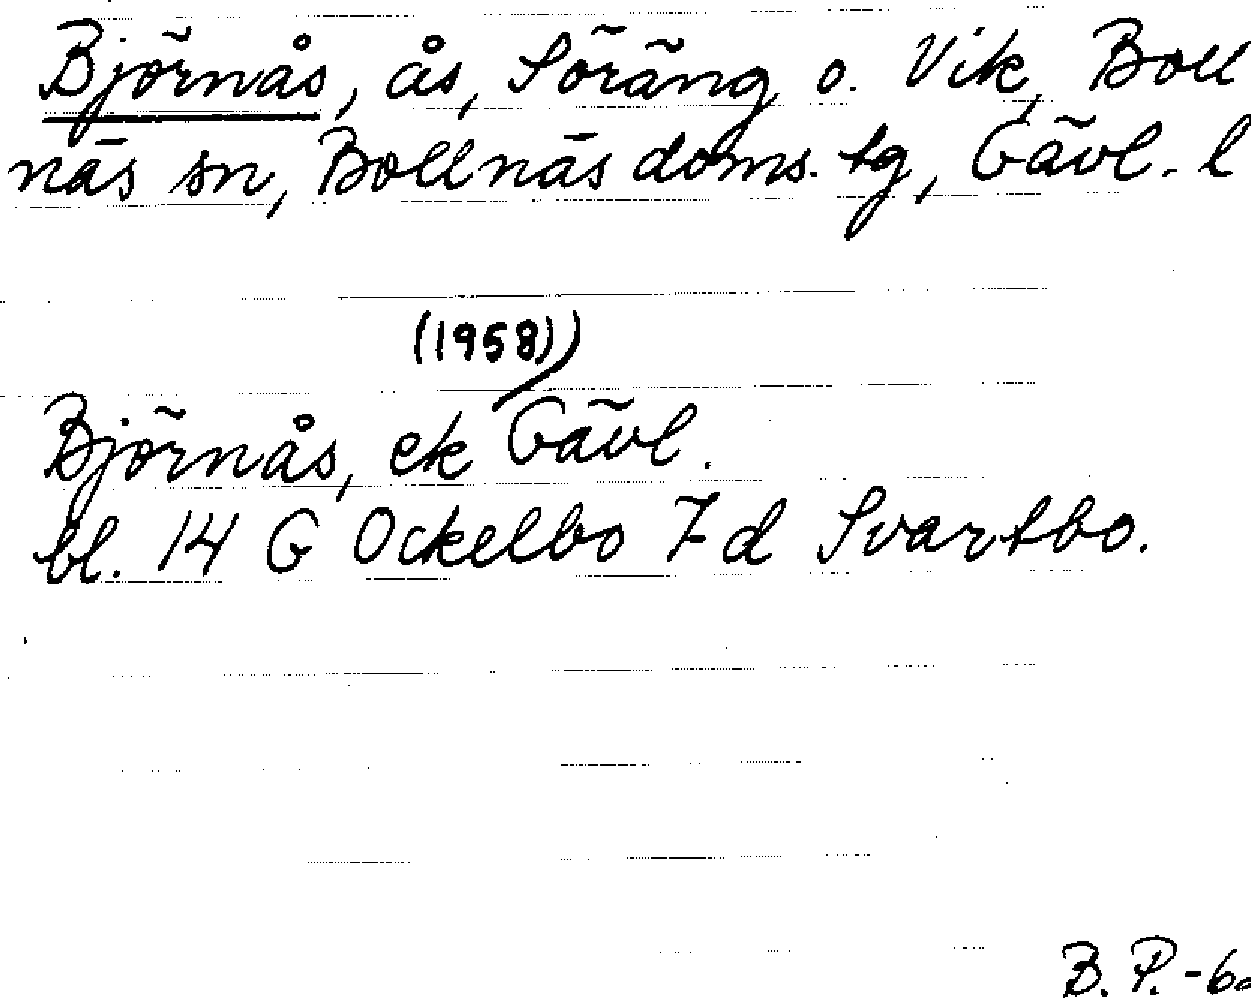 Björnås, ås, Söräng o. Vik, Boll
näs sn, Bollnäs doms. tg, Gävl. l
(1958))
Björnås, ek Gävl.
bl. 14 G Ockelbo 7 d Svartbo.
B. P. - 60